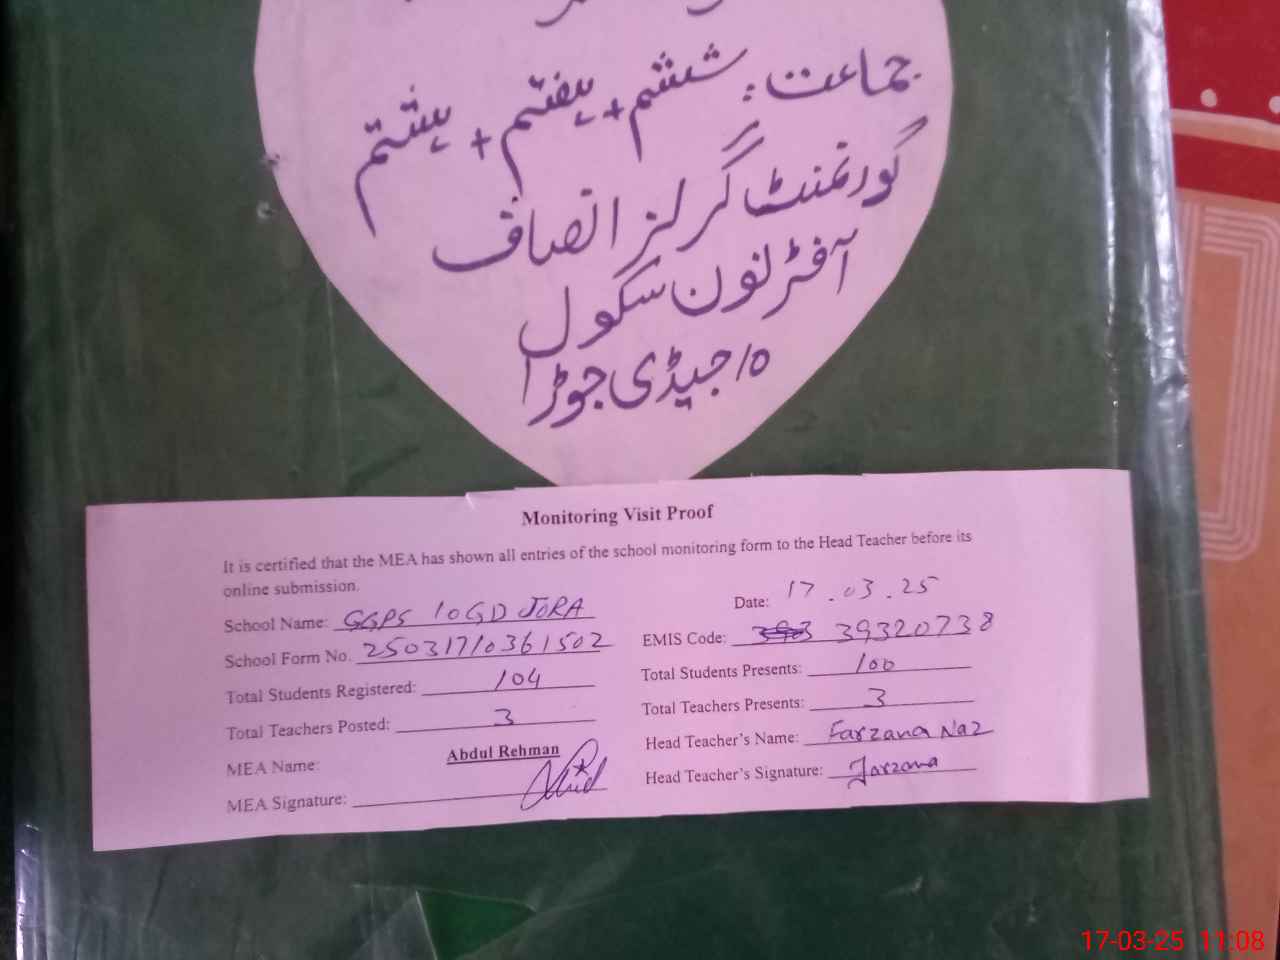 جماعت: ششم + ہفتم + ہشتم
گورنمنٹ گرلز انصاف
آفٹرنون سکول
10/جیڈی جوڑا
Monitoring Visit Proof
It is certified that the MEA has shown all entries of the school monitoring form to the Head Teacher before its
online submission.
School Name: GGPS 10GD JORA
Date: 17.03.25
School Form No. 25031710361502
EMIS Code: 39320738
Total Students Registered: 104
Total Students Presents: 100
Total Teachers Posted: 3
Total Teachers Presents: 3
MEA Name: Abdul Rehman
Head Teacher's Name: Farzana Naz
MEA Signature:
Head Teacher's Signature: Farzana
17-03-25 11:08